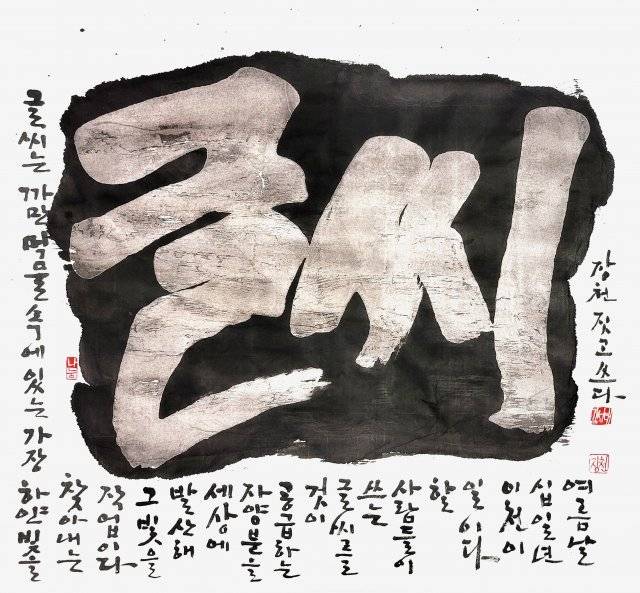 글씨
글씨는 까만 먹물 속에 있는 가장 하얀 빛을
찾아내는
작업이다
그 빛을
발산해
세상에
자양분을
공급하는
것이
글씨를
쓰는
사람들이
할
일이다
이천이
십일년
여름날
장천 짓고 쓰다